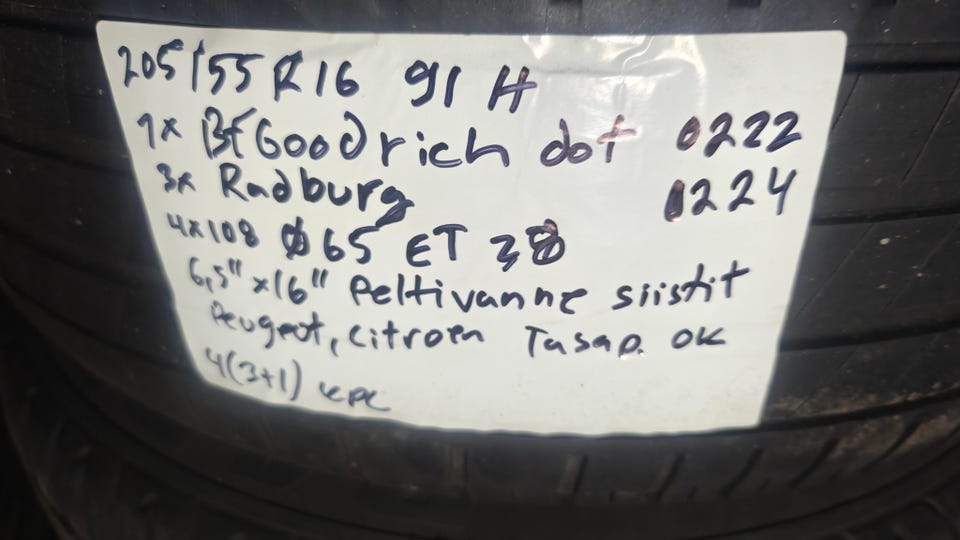 205/55 R16 91 H
1x BFGoodrich dot 0222
3x Radburg 0224
4x108 Ø65 ET 38
6,5"x16" Peltivanne siistit
Peugeot, Citroen Tasap. OK
4(3+1) KPL